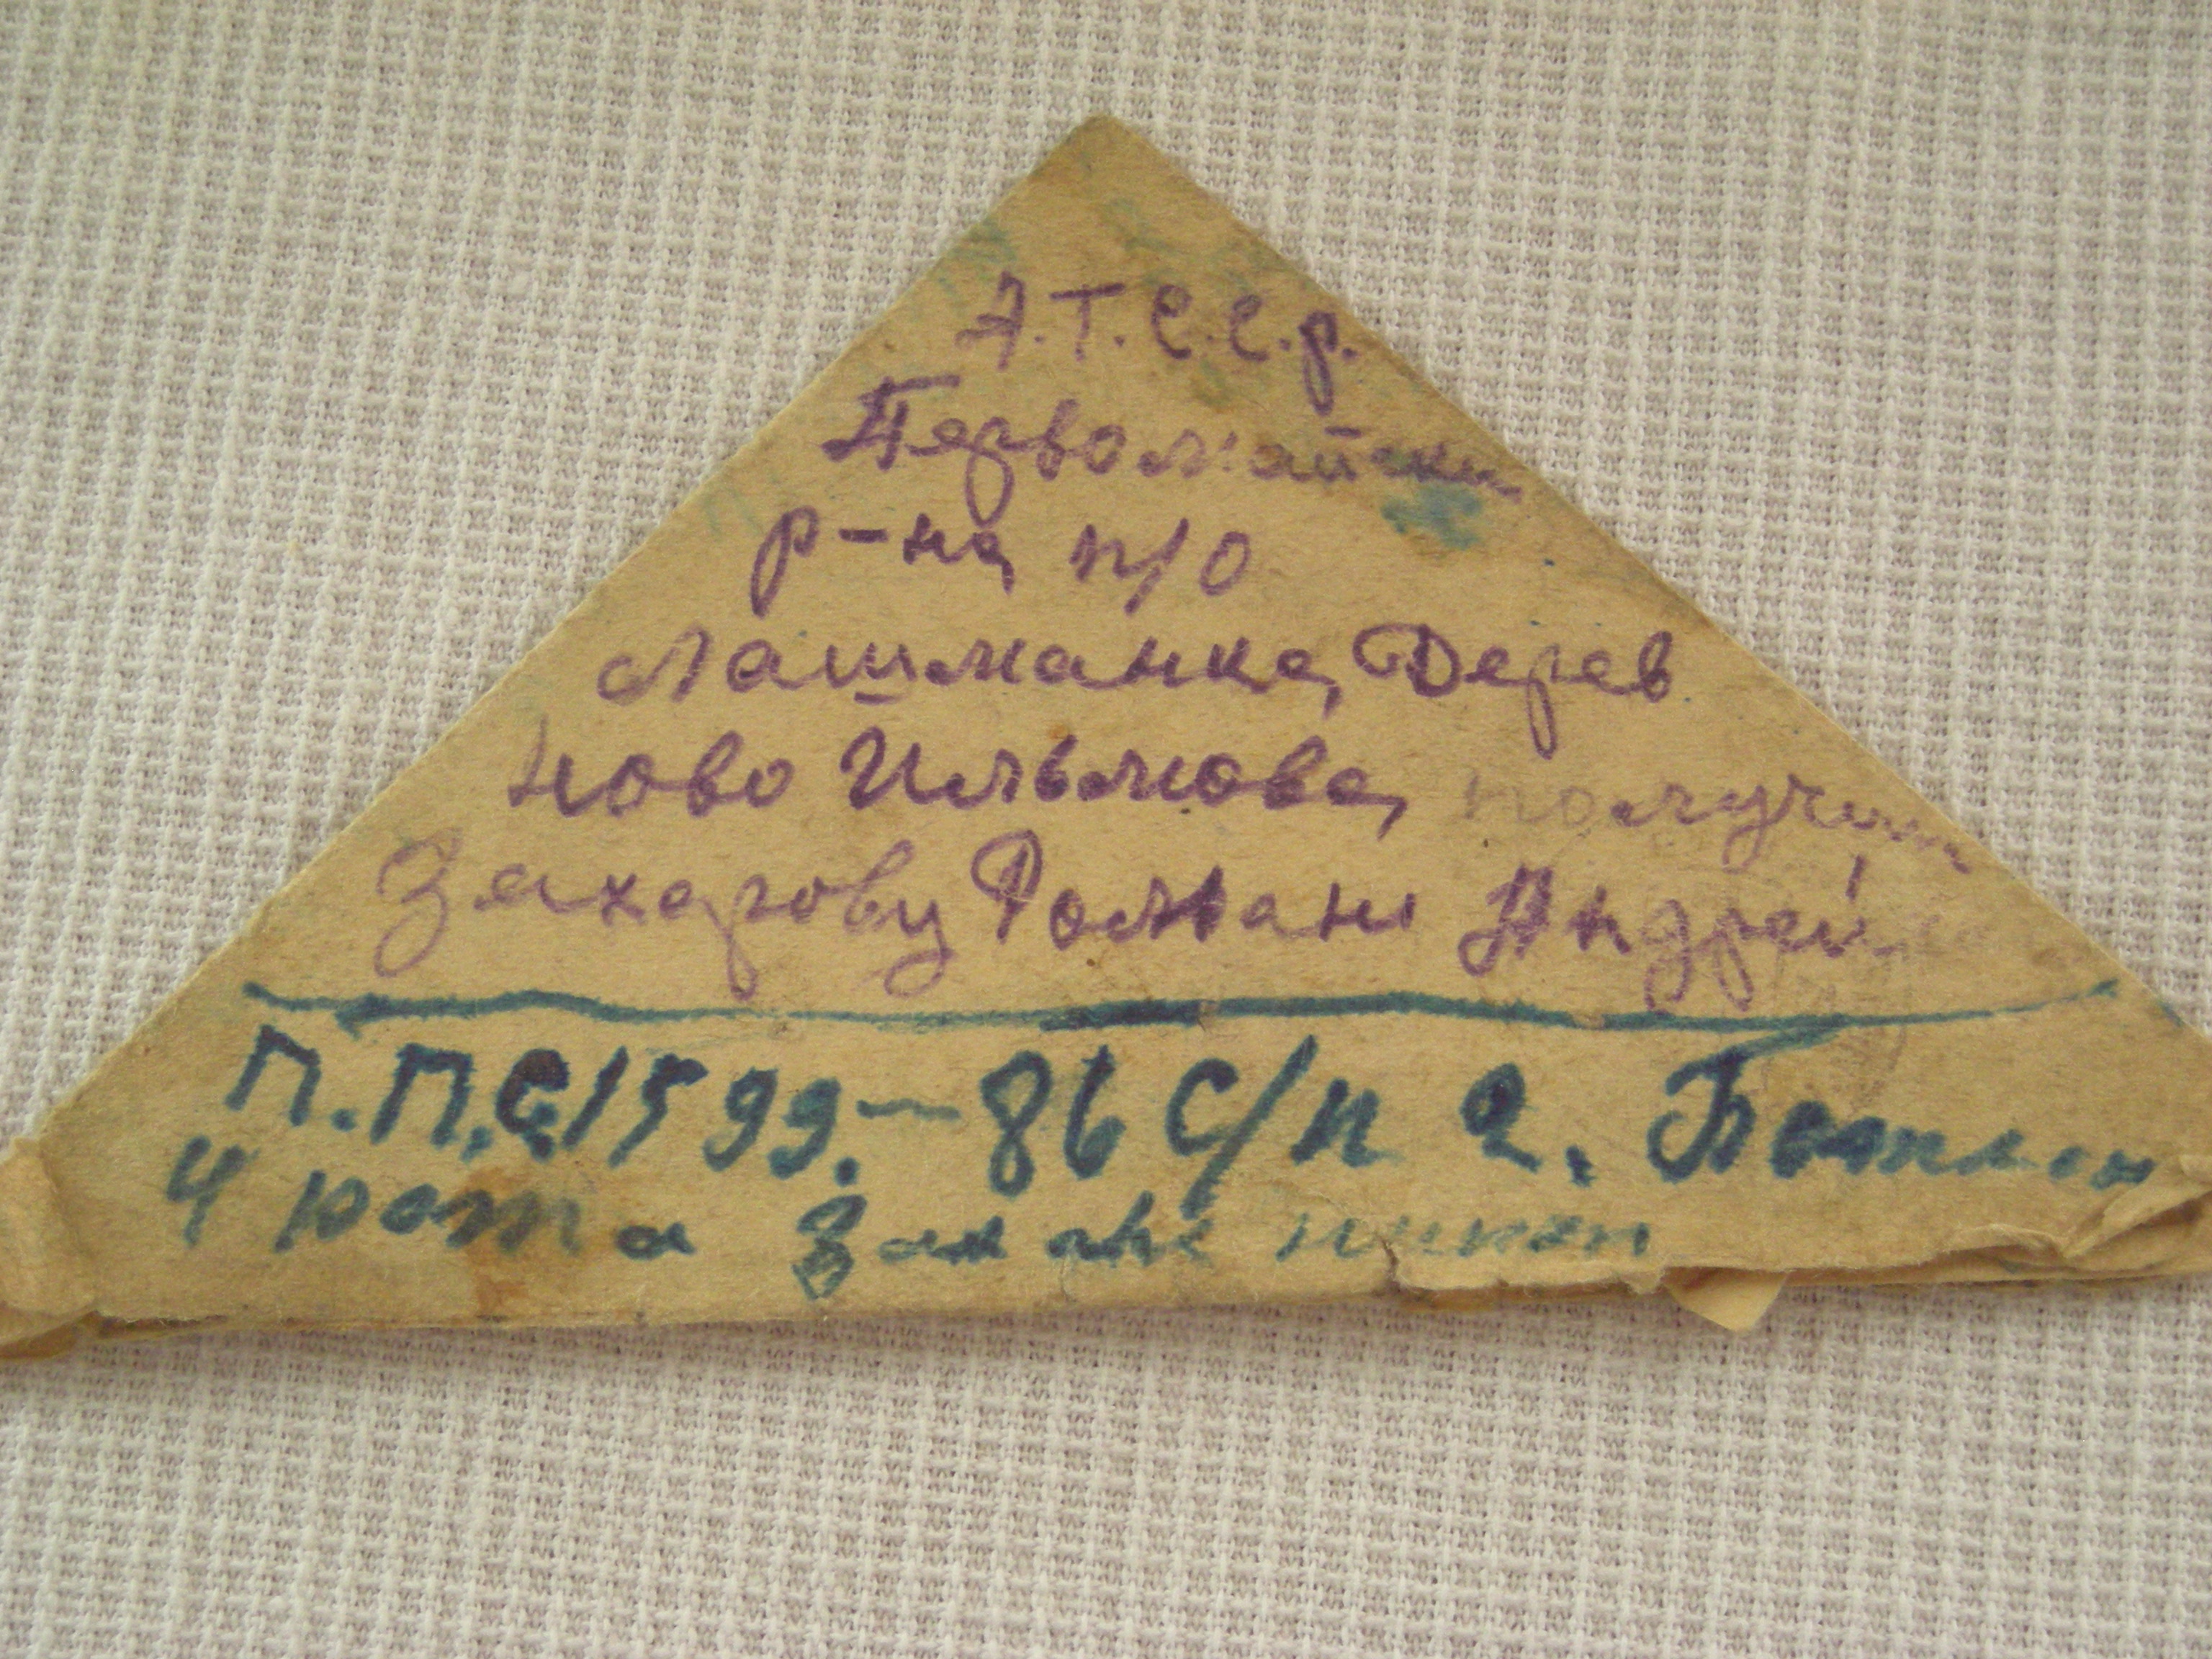 А.Т.С.С.р.
Первомайски
р-на п/о
Лашманка, Дерев
ново Ильмова, получит
Захарову Роман Андрей
П.П.С. 1599.-86 С/п 2. Батальон
4 рота